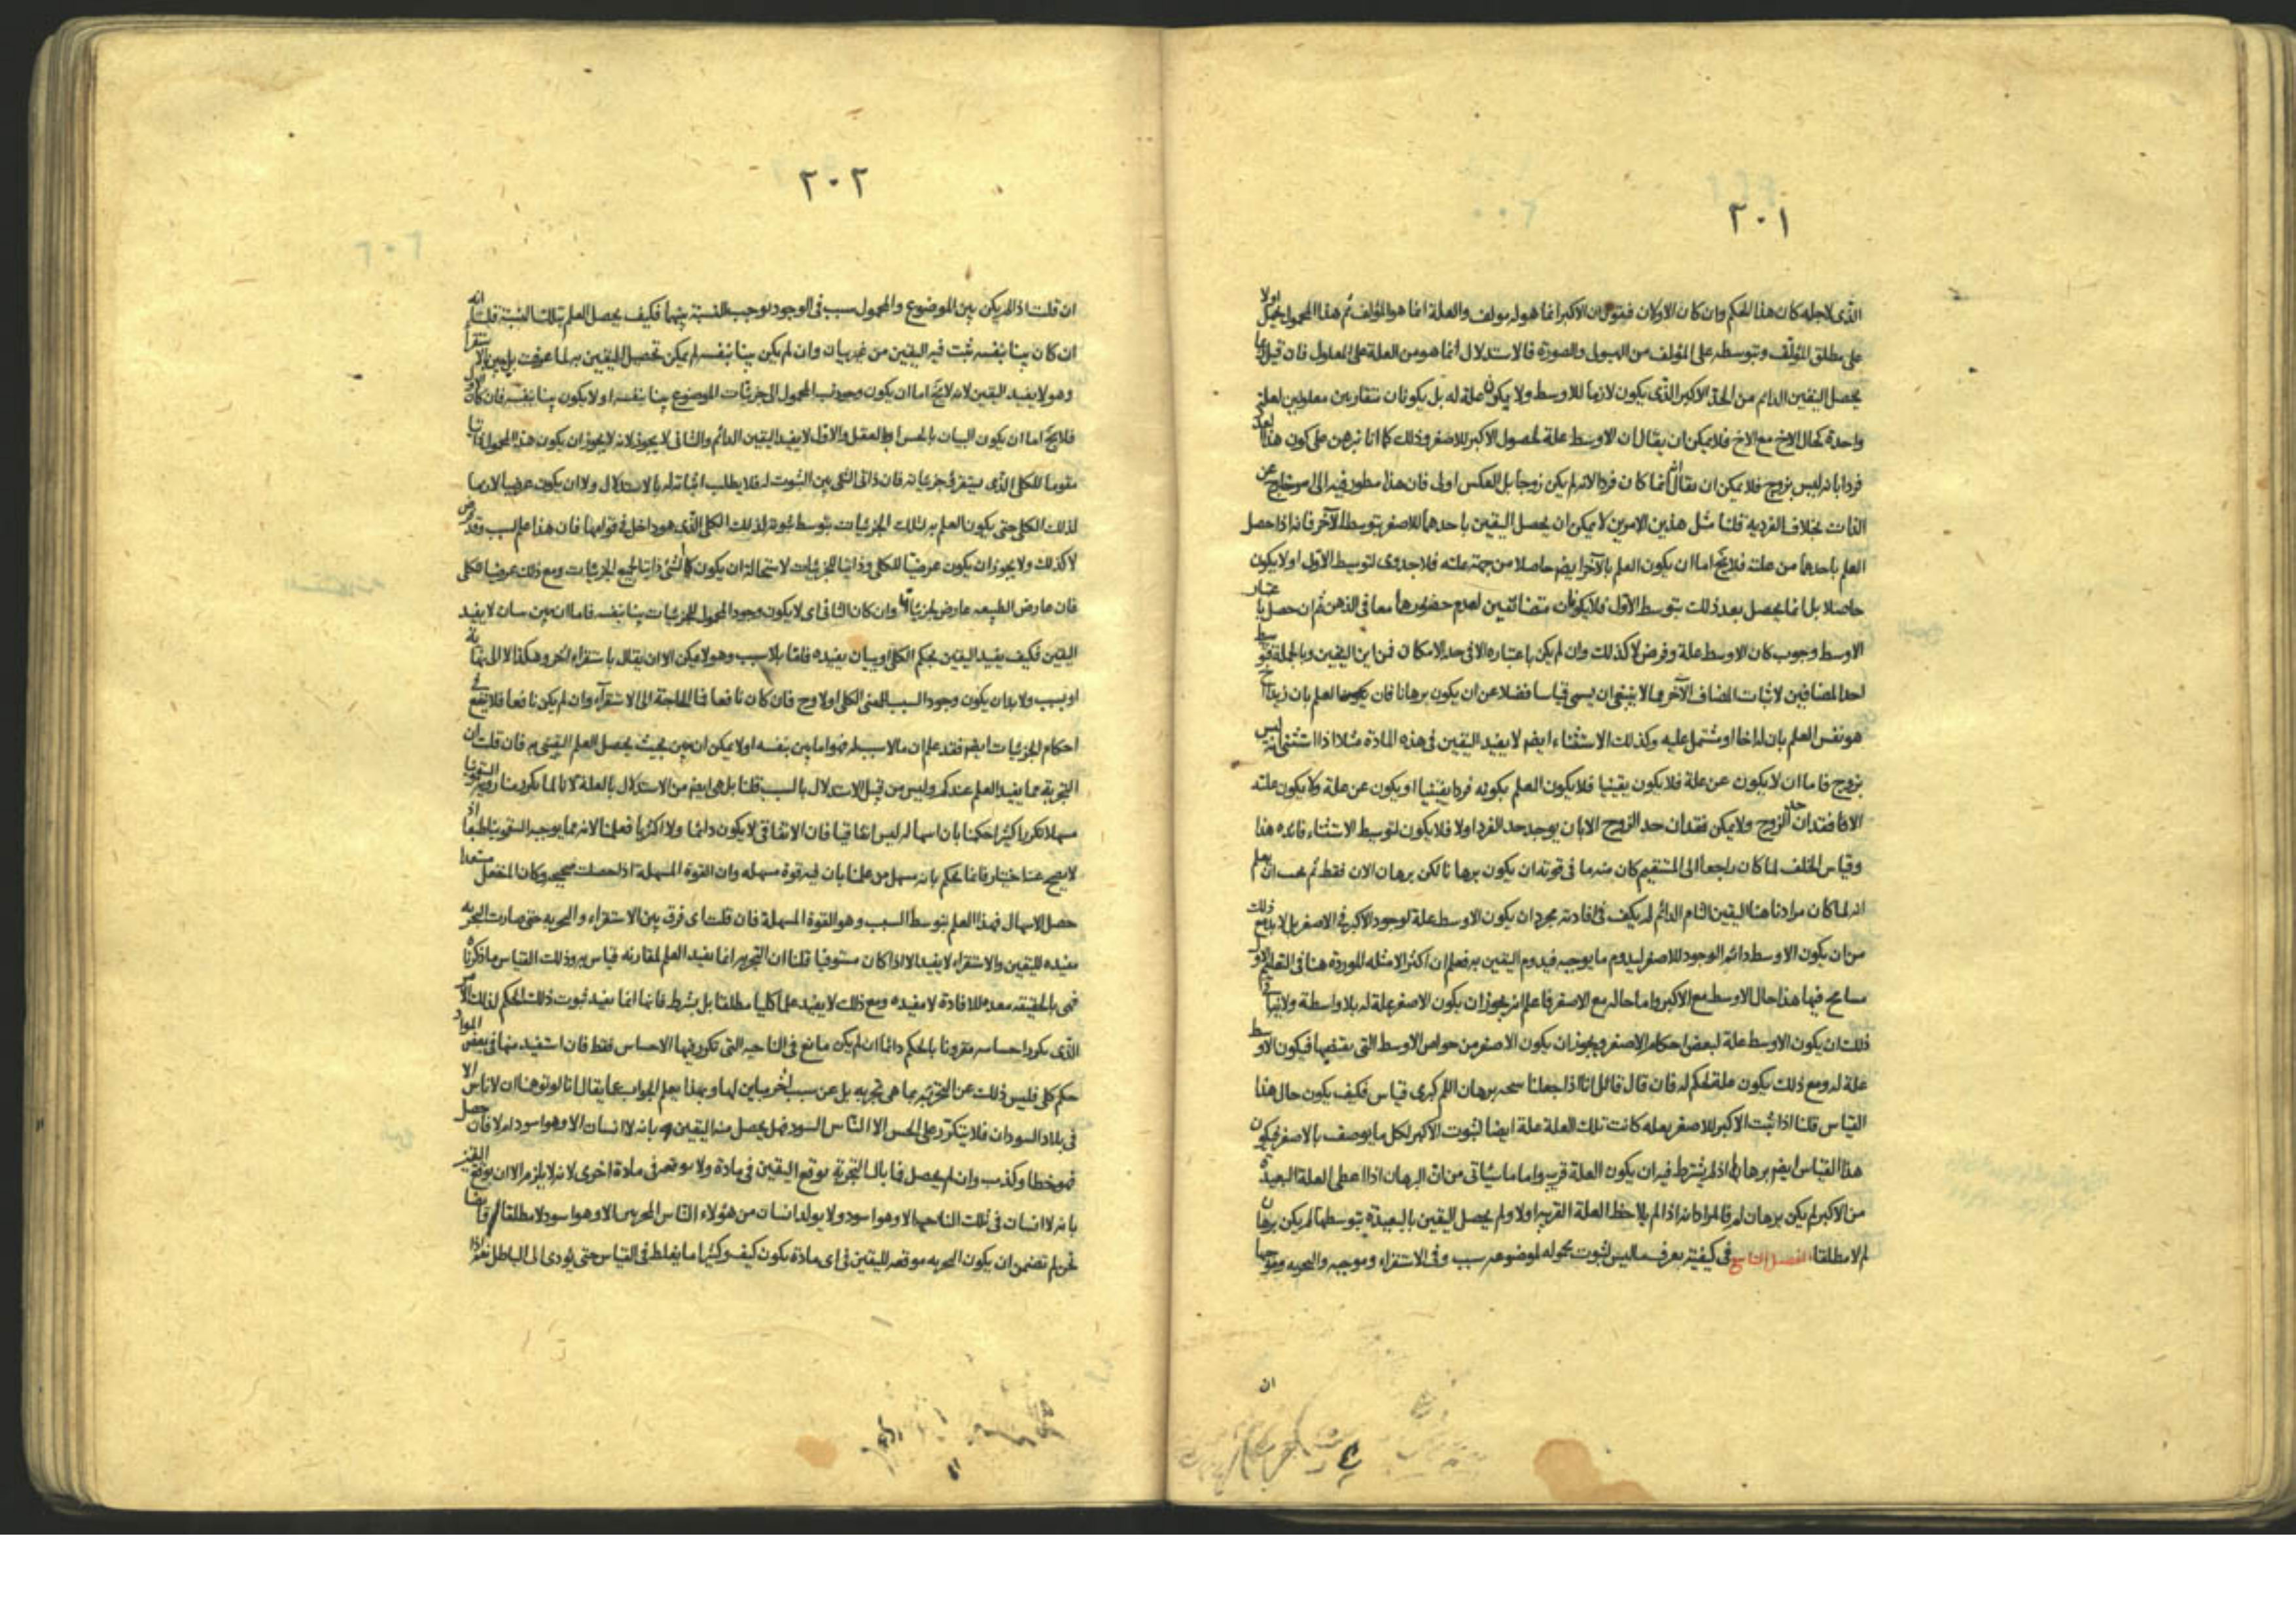 ٢٠١
الذى لاجله كان هذا الحكم وان كان الاولان فنقول ان الاكبر انما هو له مولف والعلة انما هو المؤلف ثم هذا المحمول يحمل اولا
على مطلق المؤلف وبتوسطه على المؤلف من الهيولى والصورة فالاستدلال انما هو من العلة على المعلول فان قيل ربما
يحصل اليقين الدائم من الحد الاكبر الذى يكون لازما للاوسط ولا يكون علة له بل يكونان متقارنين معلولين لعلة
واحدة كحال الاخ مع الاخ فلا يمكن ان يقال ان الاوسط علة لحصول الاكبر للاصغر وذلك كما انا نبرهن على كون هذا العدد
فردا بانه ليس بزوج فلا يمكن ان يقال انه انما كان فردا لانه لم يكن زوجا بل العكس اولى فان هذا منظور فيه الى امر خارج عن
الذات بخلاف الفردية قلنا مثل هذين الامرين لا يمكن ان يحصل اليقين باحدهما للاصغر بتوسط الآخر فانه اذا حصل
العلم باحدهما من علته فلا يخ اما ان يكون العلم بالآخر ايضا حاصلا من جهة علته فلا جدوى لتوسيط الاول او لا يكون
حاصلا بل انما يحصل بعد ذلك بتوسط الاول فلا يكونان متضائفين لعدم حضورهما معا فى الذهن ثم ان حصل باعتبار
الاوسط وجوب كان الاوسط علة وفرض لا كذلك وان لم يكن باعتباره الا فى حد الامكان فمن اين اليقين وبالجملة فتوسيط
احد المضافين لاثبات المضاف الآخر مما لا ينبغى ان يسمى قياسا فضلا عن ان يكون برهانا فان العلم بان زيدا اخ
هو نفس العلم بان له اخا او مشتمل عليه وكذلك الاستثناء ايضا لا يفيد اليقين فى هذه المادة مثلا اذا استثنى انه ليس
بزوج فاما ان لا يكون عن علة فلا يكون يقينيا فلا يكون العلم بكونه فردا يقينيا او يكون عن علة ولا يكون علته
الا فقدان حد الزوج ولا يمكن فقدان حد الزوج الا بان يوجد حد الفرد اولا فلا يكون لتوسيط الاستثناء فائده هذا
وقياس الخلف لما كان راجعا الى المستقيم كان منه ما فى قوته ان يكون برهانا لكن برهان الان فقط ثم يجب ان يعلم
انه لما كان مرادنا هنا اليقين التام الدائم لم يكف فى افادته مجرد ان يكون الاوسط علة لوجود الاكبر فى الاصغر بل لا بد مع ذلك
من ان يكون الاوسط دائم الوجود للاصغر ليدوم ما يوجبه فيدوم اليقين به فعلم ان اكثر الامثله الموردة هنا فى التعليم الاول
مسامح فيها هذا حال الاوسط مع الاكبر واما حاله مع الاصغر فاعلم انه يجوز ان يكون الاصغر علة له بلا واسطة ولا ينافى
ذلك ان يكون الاوسط علة لبعض احكام الاصغر ويجوز ان يكون الاصغر من خواص الاوسط التى يقتضيها فيكون الاوسط
علة له ومع ذلك يكون علة لحكم له فان قال قائل انا اذا جعلنا نتيجة برهان اللم كبرى قياس فكيف يكون حال هذا
القياس قلنا اذا ثبت الاكبر للاصغر بعله كانت تلك العلة علة ايضا لثبوت الاكبر لكل ما يوصف بالاصغر فيكون
هذا القياس ايضا برهان لم اذ لم يشترط فيه ان يكون العلة قريبة واما ما سيأتى من ان البرهان اذا اعطى العلة البعيدة
من الاكبر لم يكن برهان لم فالمراد انه اذا لم يلاحظ العلة القريبة اولا ولم يحصل اليقين بالبعيدة بتوسطها لم يكن برهان
لم لا مطلقا الفصل التاسع فى كيفية تعرف ما ليس لثبوت محموله لموضوعه سبب وفى الاستقراء وموجبه والتجربه وموجبها
ان
٢٠٢
ان قلت اذا لم يكن بين الموضوع والمحمول سبب فى الوجود يوجب النسبة بينهما فكيف يحصل العلم بتلك النسبة قلت انه
ان كان بينا بنفسه ثبت فيه اليقين من غير بيان وان لم يكن بينا بنفسه لم يمكن تحصيل اليقين به لما عرفت بل بين الاستقراء
وهو لا يفيد اليقين لانه لا يخ اما ان يكون وجود نسب المحمول الى جزئيات الموضوع بينا بنفسه او لا يكون بينا بنفسه فان كان الاول
فلا يخ اما ان يكون البيان بالحس او بالعقل والاول لا يفيد اليقين الدائم والثانى لا يجوز لانه لا يجوز ان يكون هذا المحمول ذاتيا
مقوما للكلى الذى يستقرئ جزئياته فان ذاتى الشى بين الثبوت له فلا يطلب اثباته له بالاستدلال ولا ان يكون عرضيا لازما
لذلك الكلى حتى يكون العلم به لتلك الجزئيات بتوسط ثبوته لذلك الكلى الذى هو داخل فى قوامها فان هذا علم بسبب وقد فرض
لا كذلك ولا يجوز ان يكون عرضيا للكلى وذاتيا للجزئيات لاستحالة ان يكون الشئ ذاتيا لجميع الجزئيات ومع ذلك عرضيا للكلى
فان عارض الطبيعه عارض لجزئياتها وان كان الثانى اى لا يكون وجود المحمول للجزئيات بينا بنفسه فاما ان بين ببيان لا يفيد
اليقين فكيف يفيد اليقين بحكم الكلى او ببيان يفيده فاما بلا سبب وهو لا يمكن الا ان يقال باستقراء آخر وهكذا لا الى نهاية
او بسبب ولا بد ان يكون وجود السبب للمعنى الكلى اولا وح فان كان نافعا فما الحاجة الى الاستقراء وان لم يكن نافعا فلا ينفع فى
احكام الجزئيات ايضا فقد علم ان ما لا سبب له فهو اما بين بنفسه او لا يمكن ان بين بحيث يحصل العلم اليقينى به فان قلت ان
التجربة مما يفيد العلم عندكم وليس من قبيل الاستدلال بالسبب قلنا بل هى ايضا من الاستدلال بالعلة لانا لما تكرر منا رؤية السقمونيا
مسهلا تكررا كثيرا حكمنا بان اسهاله ليس اتفاقيا فان الاتفاقى لا يكون دائما ولا اكثريا فعلمنا لانه مما يوجبه السقمونيا طبعا اذ
لا يصح عنه اختيار فانما نحكم بانه مسهل من علمنا بان فيه قوة مسهله وان القوة المسهلة اذا حصلت صحيحه وكان المنفعل مستعدا
حصل الاسهال فهذا العلم بتوسط السبب وهو القوة المسهلة فان قلت اى فرق بين الاستقراء والتجربه حتى صارت التجربه
مفيده لليقين والاستقراء لا يفيد الا اذا كان مستوفيا قلنا ان التجربه انما تفيد العلم لمقارنه قياس به وذلك القياس ما ذكرناه
فهى بالحقيقه معده للافادة لا مفيده ومع ذلك لا يفيد علما كليا مطلقا بل بشرط فانها انما تفيد ثبوت ذلك الحكم لذلك الامر
الذى تكرر احساسه مقرونا بالحكم دائما ان لم يكن مانع فى الناحيه التى تكرر فيها الاحساس فقط فان استفيد منها فى بعض المواد
حكم كلى فليس ذلك عن التجربه بما هى تجربه بل عن سبب آخر مباين لها وبهذا يعلم الجواب عما يقال انا لو توهمنا ان لا ناس الا
فى بلاد السودان فلا يتكرر على الحس الا الناس السود فهل يحصل منه اليقين بانه لا انسان الا وهو اسود ام لا فان حصل
فهو خطا وكذب وان لم يحصل فما بال التجربة يوقع اليقين فى مادة ولا يوقعه فى مادة اخرى لانه لا يلزم الا ان يوقع اليقين
بانه لا انسان فى تلك الناحيه الا وهو اسود ولا يولد انسان من هؤلاء الناس المجربين الا وهو اسود لا مطلقا وايضا فانا
نحن لم نضمن ان يكون التجربه موقعه لليقين فى اى مادة يكون كيف وكثيرا ما يغلط فى القياس حتى يؤدى الى الباطل نعم اذا